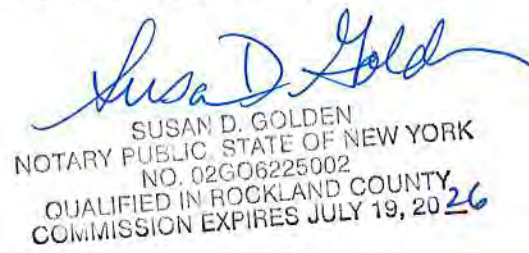 Susan D. Golden
SUSAN D. GOLDEN
NOTARY PUBLIC, STATE OF NEW YORK
NO. 02GO6225002
QUALIFIED IN ROCKLAND COUNTY
COMMISSION EXPIRES JULY 19, 2026